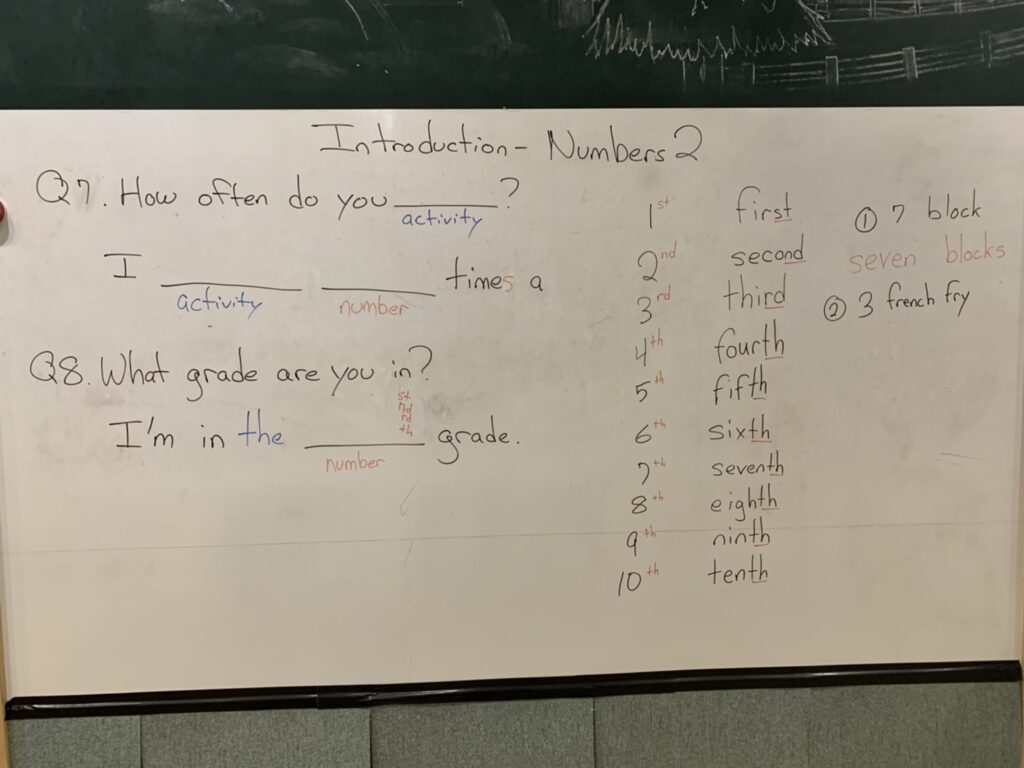 Introduction - Numbers 2
Q7. How often do you ______?
activity
I ______ ______ times a
activity number
Q8. What grade are you in?
st
nd
rd
th
I'm in the ______ grade.
number
1st first
2nd second
3rd third
4th fourth
5th fifth
6th sixth
7th seventh
8th eighth
9th ninth
10th tenth
① 7 block
seven blocks
② 3 french fry